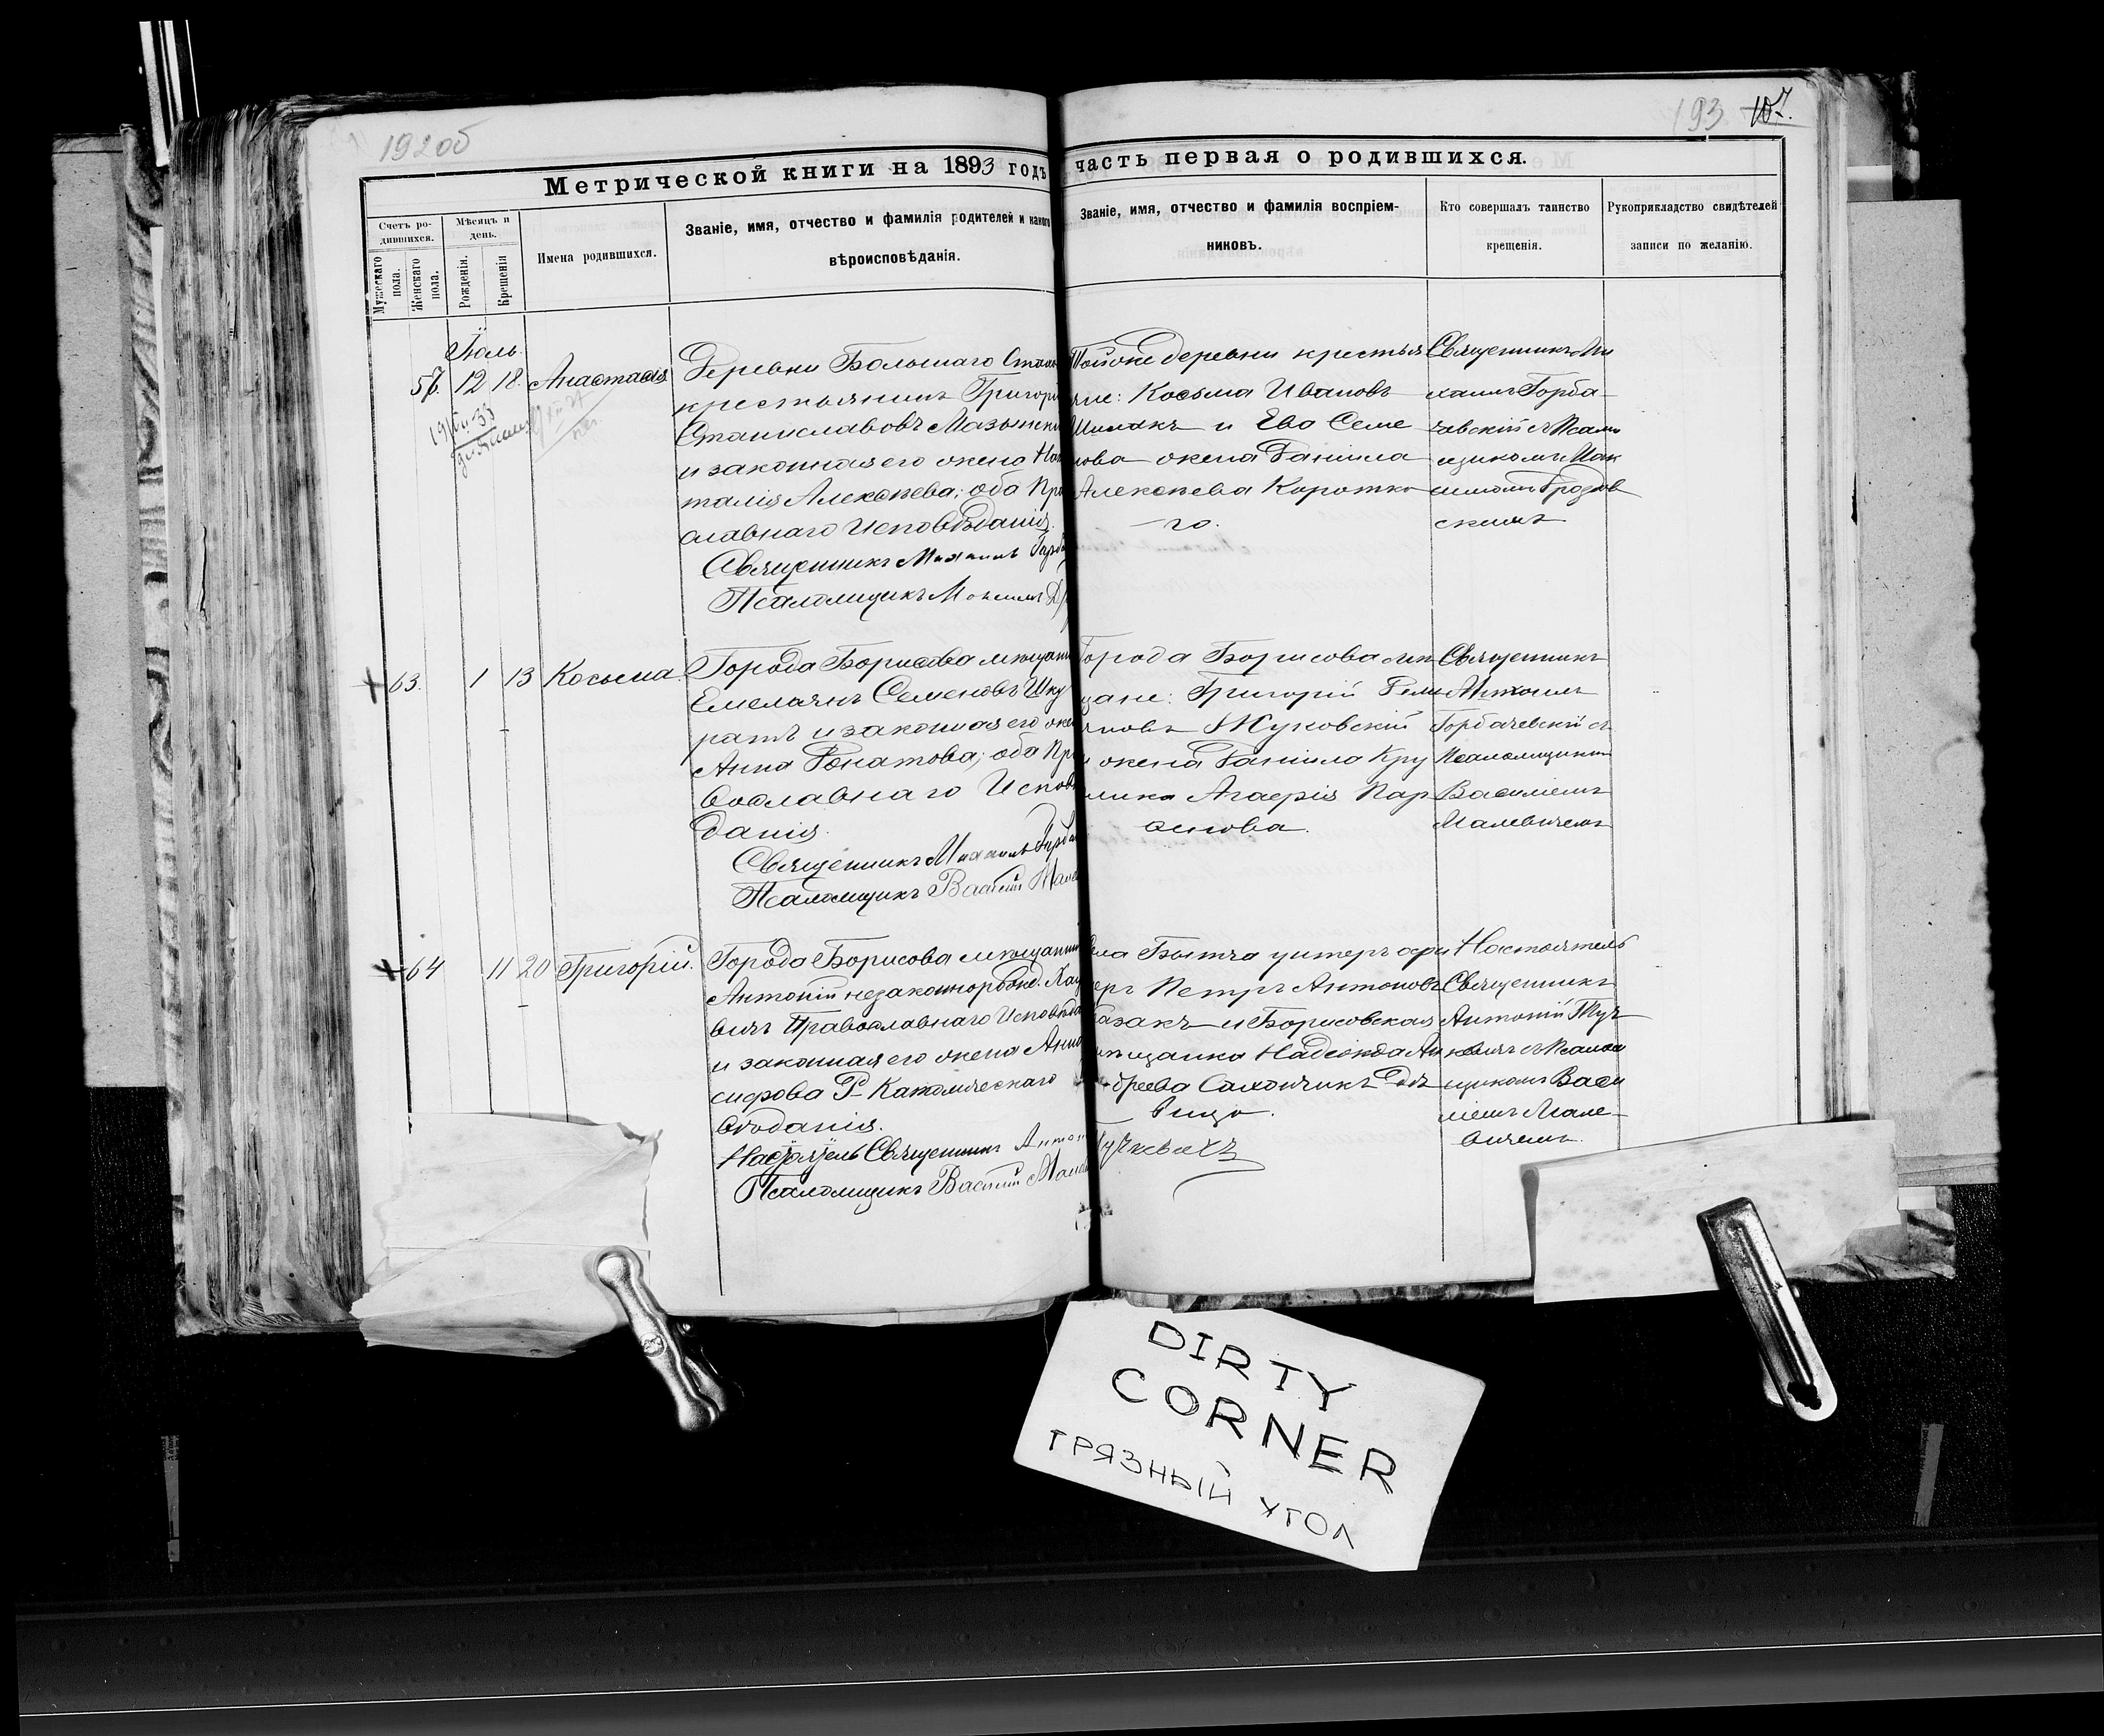 192об
193 107.
Метрической книги на 1893 годъ часть первая о родившихся.
Счетъ ро-
дившихся.
Мужескаго
пола.
Женскаго
пола.
Мѣсяцъ и
день.
Рожденія.
Крещенія
Имена родившихся.
Званіе, имя, отчество и фамилія родителей и какого
вѣроисповѣданія.
Званіе, имя, отчество и фамилія воспріем-
никовъ.
Кто совершалъ таинство
крещенія.
Рукоприкладство свидѣтелей
записи по желанію.
Іюль
57. 12 18. Анастасія
Деревни Большаго Стах
крестьянинъ Григорі
Станиславовъ
и законная его жена На
талія Алексѣева; оба Пра
славнаго Исповѣданія.
Священникъ Михаилъ Горба
Псаломщикъ Максимъ
Тойже деревни крестья
яне: Косьма Ивановъ
и Ева Семе
нова жена Даніила
Алексѣева Коротка
го.
Священникъ Ми
хаилъ Горба-
чевскій съ Псалм
щикомъ Мак
симомъ
скимъ
63. 1 13 Косьма.
Города Борисова мѣщани
Емельянъ Семеновъ Шку
ратъ и законная его жен
Анна Донатова; оба Пра
вославнаго Исповѣ
данія.
Священникъ Михаилъ Горба
Псаломщикъ Василій Мале
Города Борисова мѣ
щане: Григорій
новъ Жуковскій
и жена Даніила Кру
Агафія Пар
ѳенова.
Священникъ
Михаилъ
Горбачевскій съ
Псаломщикомъ
Василіемъ
Малевичемъ
64 11 20 Григорій.
Города Борисова мѣщанин
Антоній незаконнорожд.
вичъ Православнаго Исповѣда
и законная его жена Анна
сифова Р- Католическаго
вѣданія.
Настоятель Священникъ Антон
Псаломщикъ Василій Мале
ела Бытча унтеръ офи
церъ Петръ Антоновъ
Казакъ и Борисовская
мѣщанка Надежда Ан
дреева Сахончикъ Дѣ
вица.
Тучкевичъ
Настоятель
Священникъ
Антоній Туч
кевичъ съ Псалом
щикомъ Васи
ліемъ Мале-
вичемъ.
DIRTY
CORNER
ГРЯЗНЫЙ УГОЛ